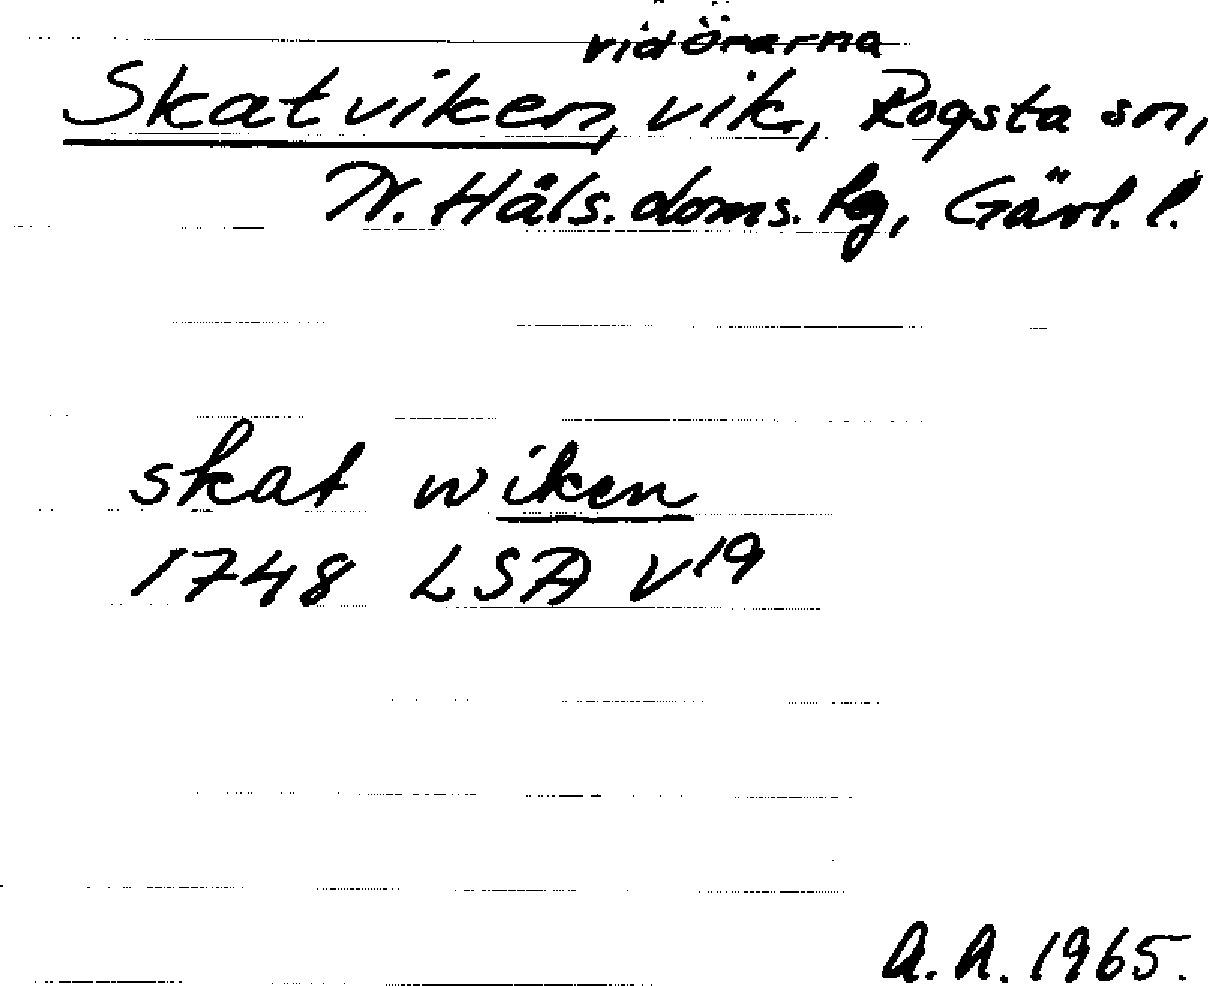 vid örarna
Skatviken, vik, Rogsta sn,
N. Häls. doms. lg, Gävl. l.
skat wiken
1748 LSA V19
A. A. 1965.